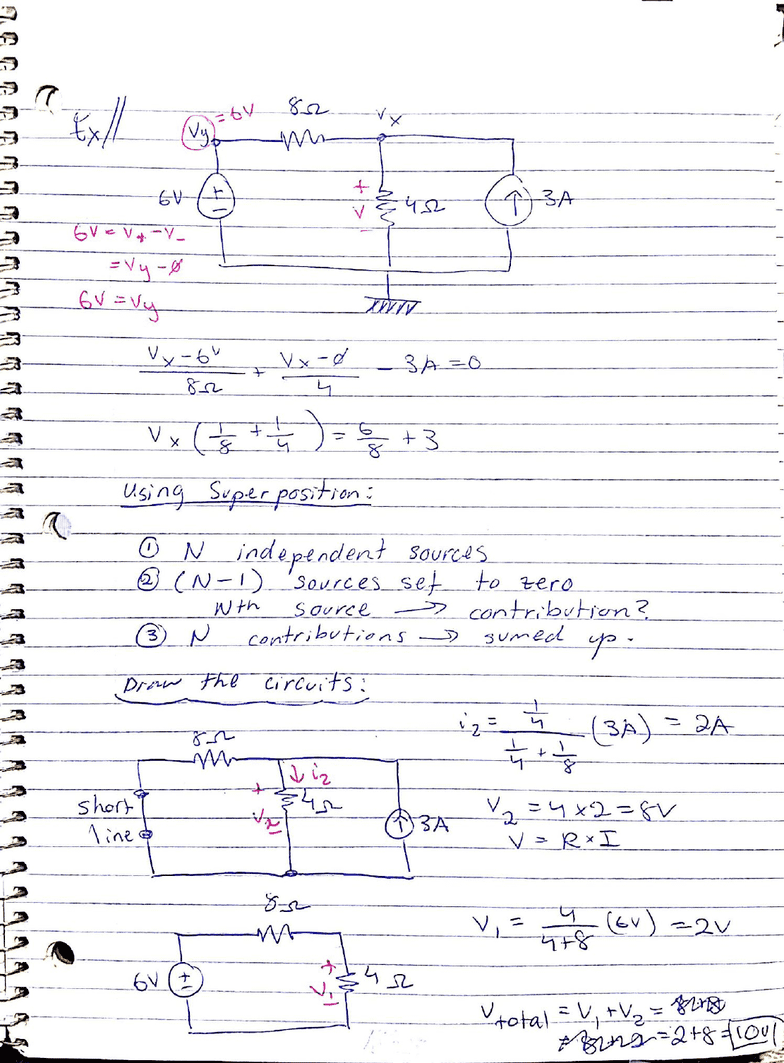 Ex//
Vy = 6V
8Ω
Vx
6V
+
-
+
V
-
4Ω
3A
6V = V+ - V-
= Vy - 0
6V = Vy
(Vx - 6V)/8Ω + (Vx - 0)/4 - 3A = 0
Vx (1/8 + 1/4) = 6/8 + 3
Using Superposition:
① N independent sources
② (N-1) sources set to zero
Nth source → contribution?
③ N contributions → sumed up.
Draw the circuits:
i2 = (1/4)/(1/4 + 1/8) (3A) = 2A
8Ω
short
line
+
↓ i2
4Ω
V2
-
3A
V2 = 4 × 2 = 8V
V = R × I
8Ω
6V
+
-
+
V1
-
4Ω
V1 = 4/(4+8) (6V) = 2V
Vtotal = V1 + V2 =
= 2+8 = 10V